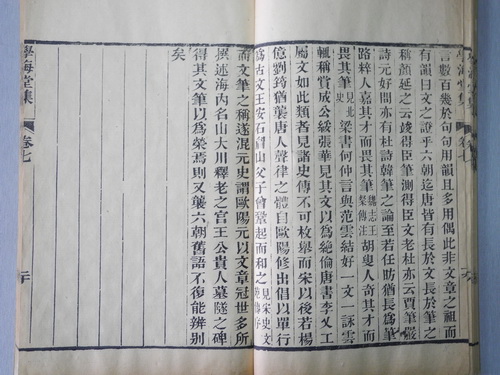 學海堂集 卷七
言數百幾於句句用韻且多用偶此非文章之祖而
有韻曰文之證乎六朝迄唐皆有長於文長於筆之
稱顏延之云竣得臣筆測得臣文老杜亦云賈筆嚴
詩元好問亦有杜詩韓筆之論至若任昉猶長爲筆
路粹人嘉其才而畏其筆魏志王粲傳注胡叟人奇其才而
畏其筆見北史梁書何仲言與范雲結好一文一詠雲
輒稱賞成公綏張華見其文以爲絶倫唐書李乂工
屬文如此類者見諸史傳不可枚舉而宋以後若楊
億劉筠猶襲唐人聲律之體自歐陽修出倡以單行
爲古文王安石眉山父子曾鞏起而和之見宋史文苑傳序
而文筆之稱遂混元史謂歐陽元以文章冠世多所
撰述海内名山大川釋老之宮王公貴人墓隧之碑
得其文筆以爲榮焉則又襲六朝舊語不復能辨别
矣
學海堂集 卷七